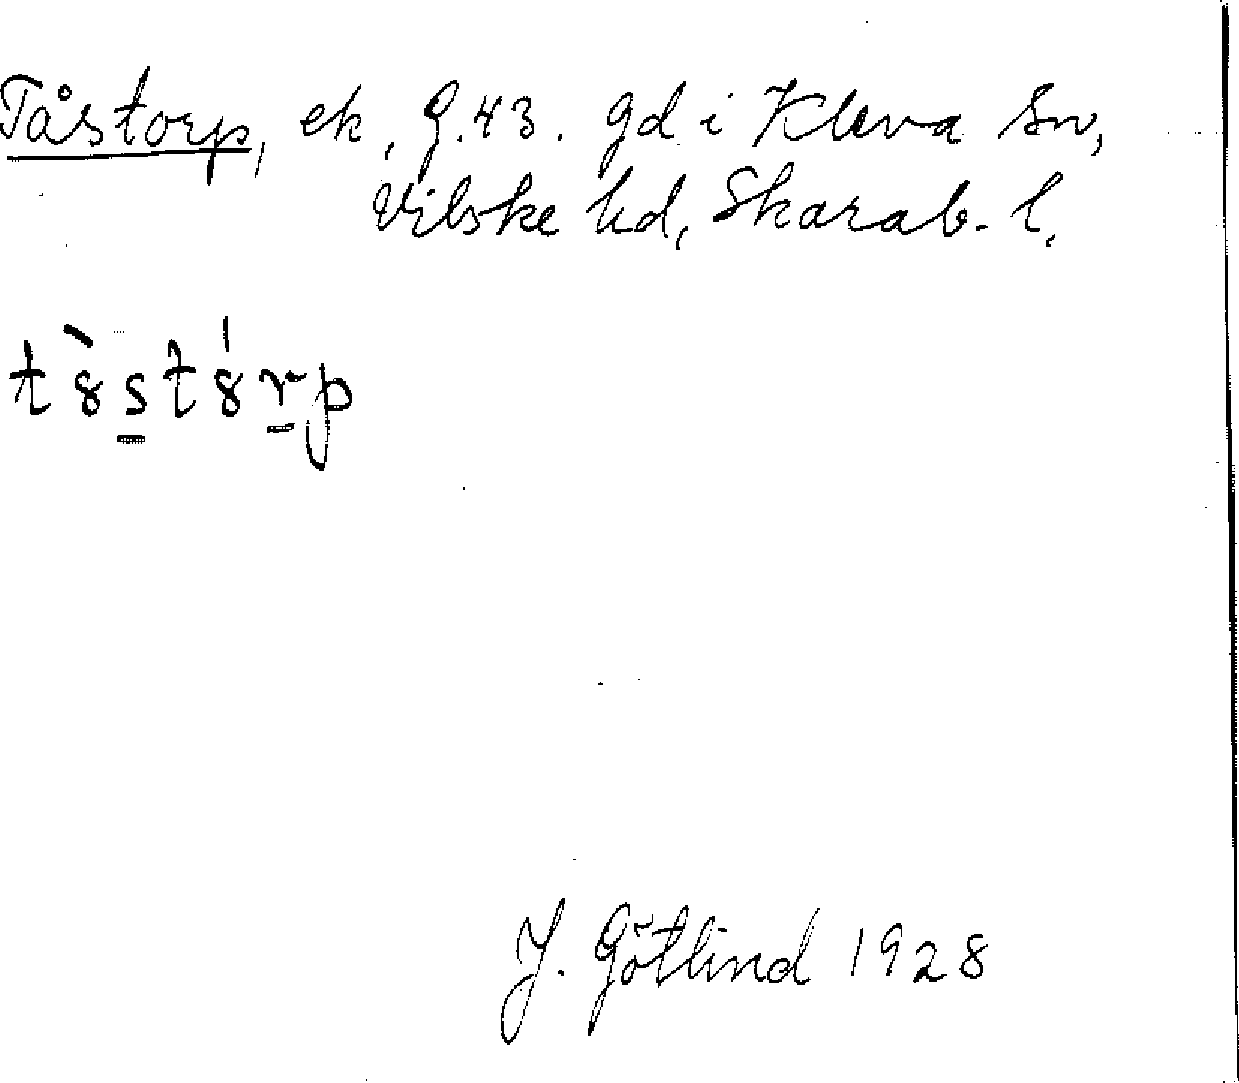 Tåstorp, ek, G.43. gd i Kleva Sn,
Vilske hd, Skarab. l.
t8̀st8́rp
J. Götlind 1928